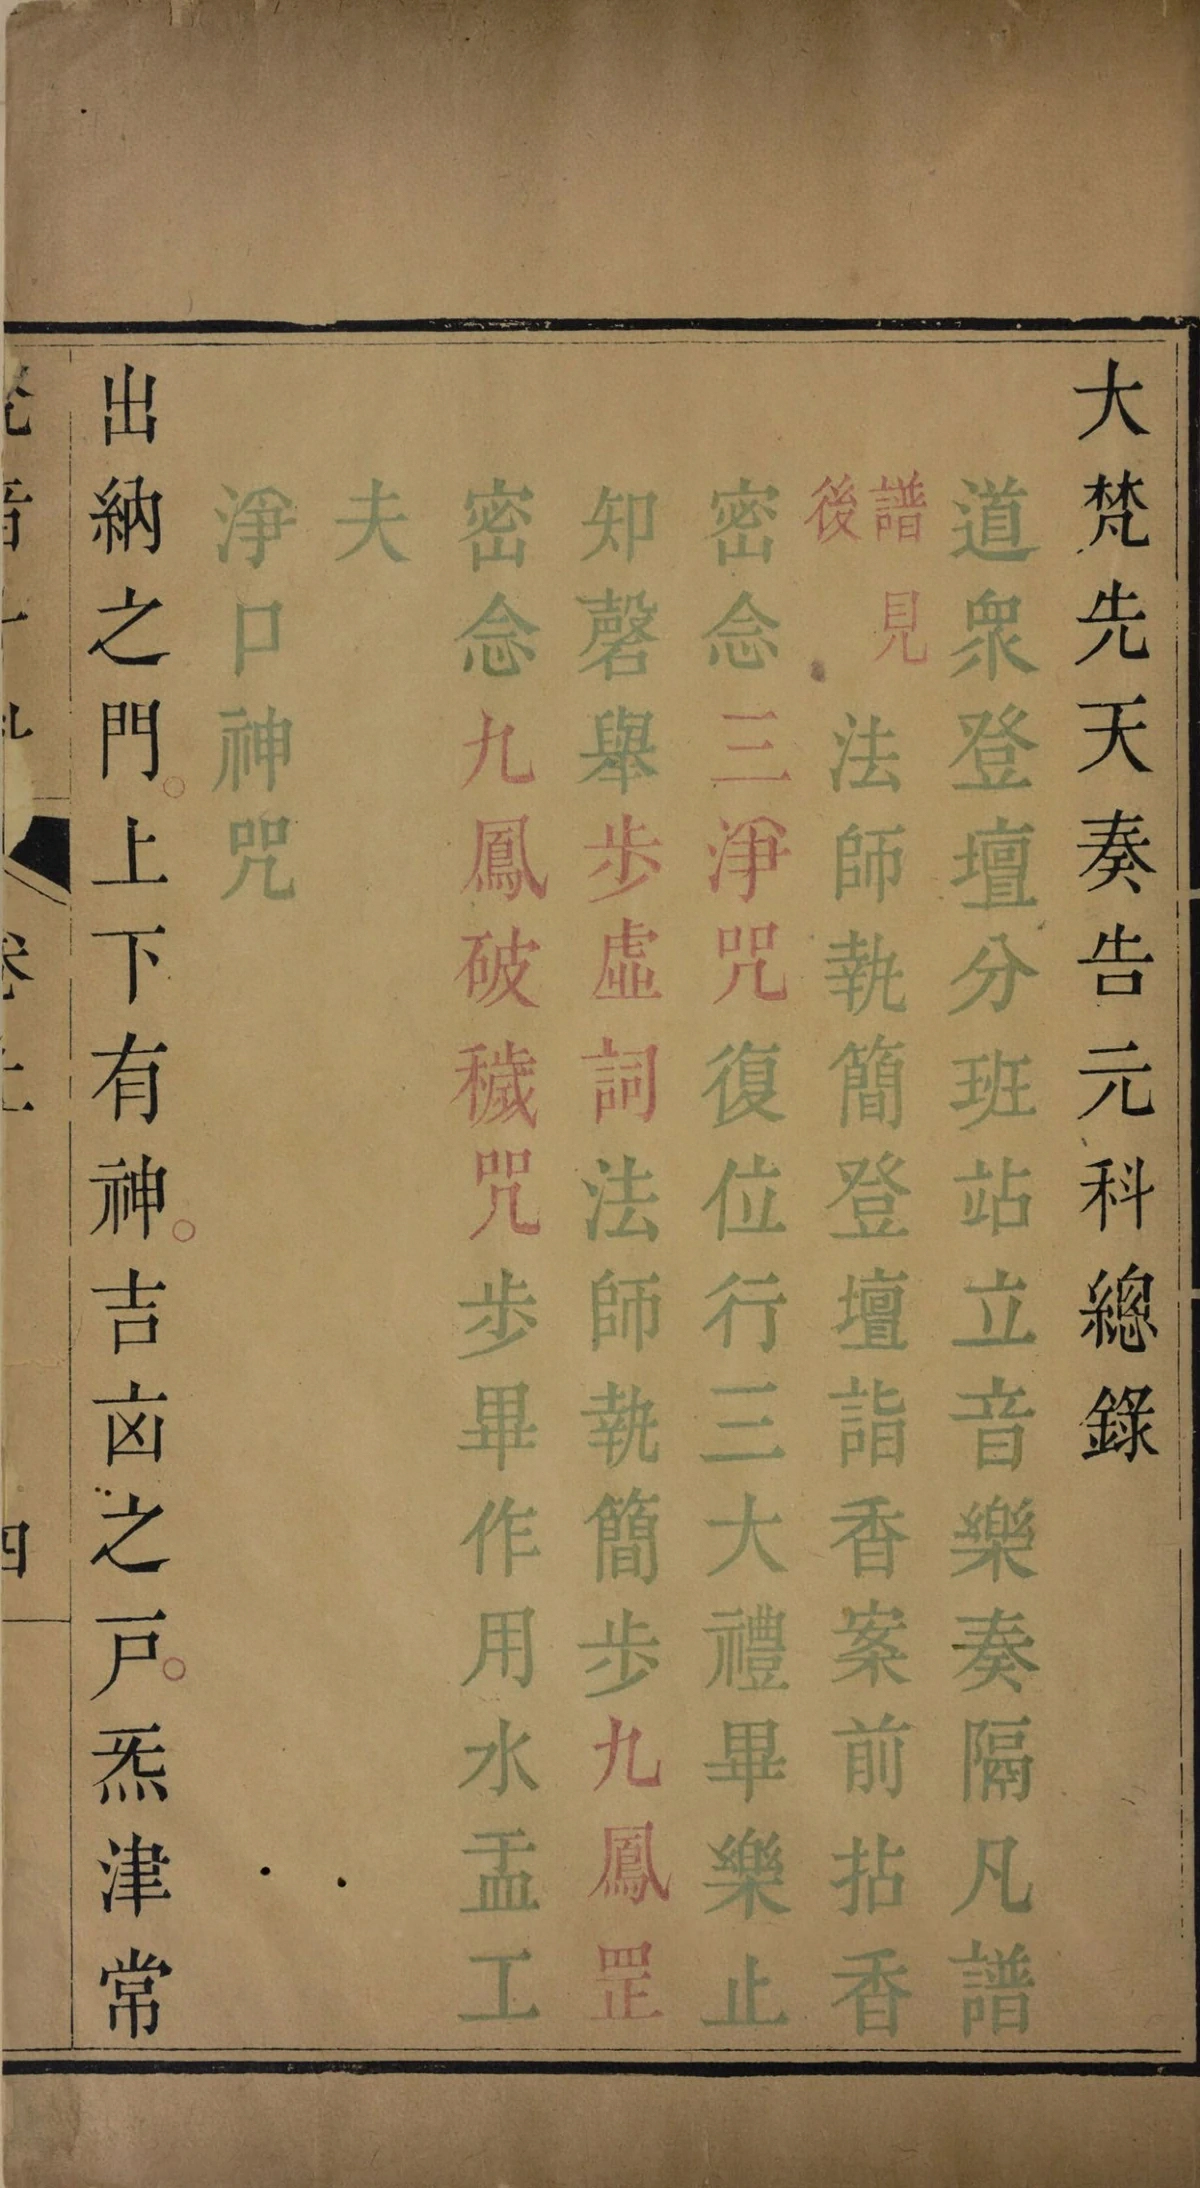 大梵先天奏告元科總錄
道衆登壇分班站立音樂奏隔凡譜
譜見
後
法師執簡登壇詣香案前拈香
密念三淨咒復位行三大禮畢樂止
知磬舉步虛詞法師執簡步九鳳罡
密念九鳳破穢咒步畢作用水盂工
夫
淨口神咒
出納之門。上下有神。吉㐫之戸。炁津常